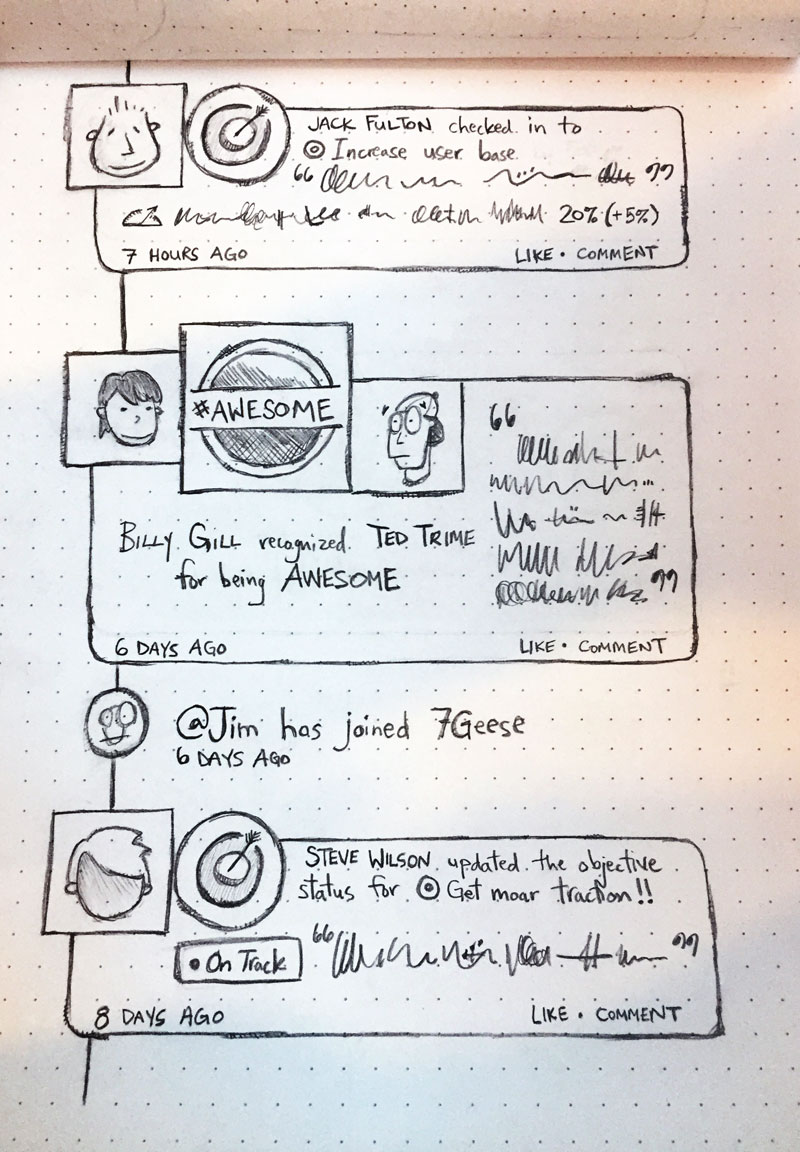 JACK FULTON checked in to
Increase user base
“ ”
20% (+5%)
7 HOURS AGO LIKE • COMMENT
#AWESOME
“
BILLY GILL recognized TED TRIME
for being AWESOME
”
6 DAYS AGO LIKE • COMMENT
@Jim has joined 7Geese
6 DAYS AGO
STEVE WILSON updated the objective
status for Get moar traction!!
• On Track “ ”
8 DAYS AGO LIKE • COMMENT